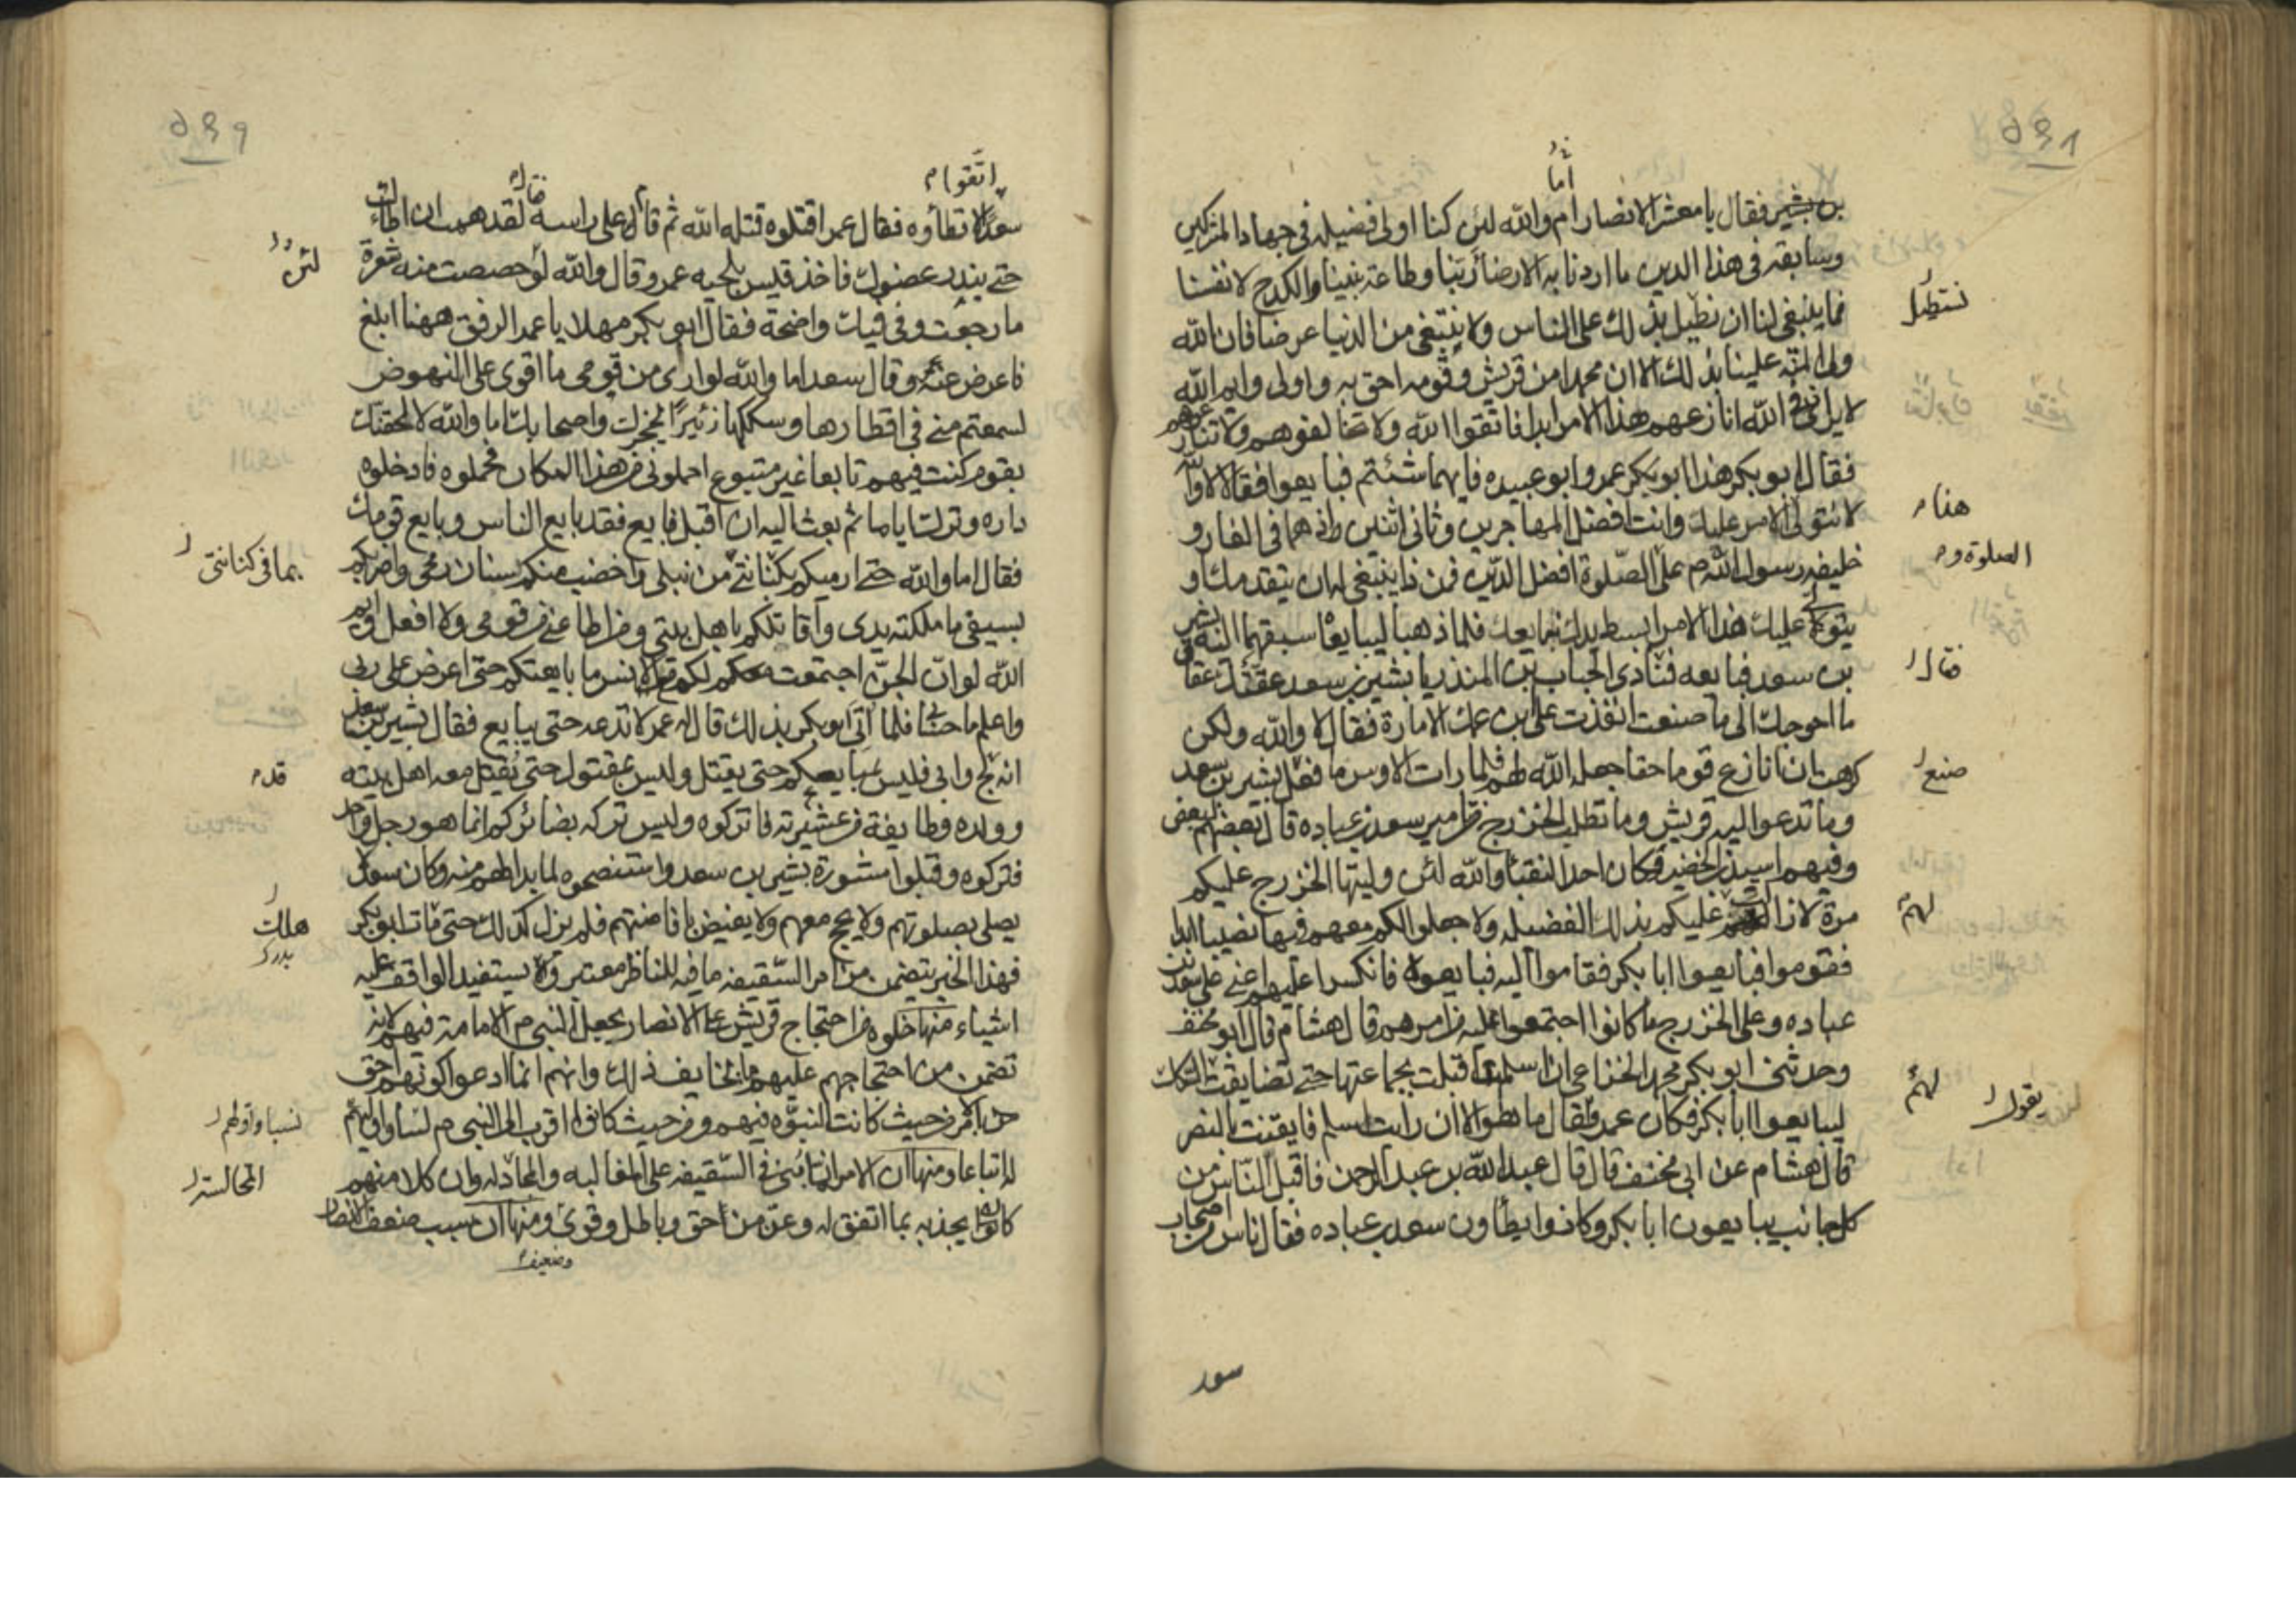 ٥٤٨
أما
بن بشير فقال يا معشر الانصار ام والله لئن كنا اولى فضيله فى جهاد المشركين
وسابقه فى هذا الدين ما اردنا به الا رضا ربنا وطاعة نبينا والكدح لانفسنا
نستطيل
فما ينبغى لنا ان نطيل بذلك على الناس ولا نبتغى من الدنيا عرضا فان الله
ولى المنه علينا بذلك الا ان محمدا من قريش وقومه احق به واولى وايم الله
لا يرانى الله انازعهم هذا الامر ابدا فاتقوا الله ولا تخالفوهم ولا تنازعوهم
فقال ابو بكر هذا ابو بكر عمر وابو عبيده فايهما شئتم فبايعوا فقالا لا والله
هذا م
لا نتولى الامر عليك وانت افضل المهاجرين وثانى اثنين اذ هما فى الغار و
الصلوة و م
خليفه رسول الله م على الصلوة افضل الدين فمن ذا ينبغى له ان يتقدمك او
يتولى عليك هذا الامر ابسط يدك نبايعك فلما ذهبا ليبايعاه سبقهما اليه بشير
فقال
بن سعد فبايعه فنادى الحباب بن المنذر يا بشير بن سعد عققت عقا
ما احوجك الى ما صنعت انفذت على ابن عمك الامارة فقال لا والله ولكن
صنع
كرهت ان انازع قوما حقا جعله الله لهم فلما رات الاوس ما فعل بشير بن سعد
وما تدعوا اليه قريش وما تطلب الخزرج من تامير سعد بن عباده قال بعضهم لبعض
وفيهم اسيد بن حضير فكان احد النقباء والله لئن وليتها الخزرج عليكم
لهم
مرة لا زالت عليكم بذلك الفضيله ولا جعلوا لكم معهم فيها نصيبا ابدا
فقوموا فبايعوا ابا بكر فقاموا اليه فبايعوه فانكسر عليهم اعنى على سعد بن
عباده وعلى الخزرج ما كانوا اجتمعوا عليه من امرهم قال هشام قال ابو مخنف
وحدثنى ابو بكر محمد الخزاعى ان اسلم اقبلت بجماعتها حتى تضايقت السكك
لهم
يقول
ليبايعوا ابا بكر فكان عمر يقال ما هو الا ان رايت اسلم فايقنت بالنصر
قال هشام عن ابى مخنف قال قال عبد الله بن عبد الرحمن فاقبل الناس من
كل جانب يبايعون ابا بكر وكانوا يطأون سعد بن عباده فقال ناس من اصحاب
سعد
٥٤٩
اتقوا م
فقال
سعد لا تطأوه فقال عمر اقتلوه قتله الله ثم قام على راسه لقد هممت ان اطأك
لئن
حتى يندر عضوك فاخذ قيس بلحيه عمر وقال والله لو حصصت منه شعرة
ما رجعت وفى فيك واضحة فقال ابو بكر مهلا يا عمر الرفق ههنا ابلغ
فاعرض عنه وقال سعد اما والله لو ارى من قومى ما اقوى على النهوض
لسمعتم منى فى اقطارها وسككها زئيرا يحجرك واصحابك اما والله لالحقنك
بقوم كنت فيهم تابعا غير متبوع احملونى من هذا المكان فحملوه فادخلوه
داره وترك اياما ثم بعث اليه ان اقبل فبايع فقد بايع الناس وبايع قومك
بما فى كنانتى
فقال اما والله حتى ارميكم بكنانتى من نبلى واخضب منكم سنان رمحى واضربكم
بسيفى ما ملكته يدى واقاتلكم باهل بيتى ومن اطاعنى من قومى ولا افعل وايم
الله لو ان الجن اجتمعت لكم مع الانس ما بايعتكم حتى اعرض على ربى
واعلم ما حسابى فلما اتى ابو بكر بذلك قال له عمر لا تدعه حتى يبايع فقال بشير بن سعد
قد م
انه لج وابى فليس يبايعكم حتى يقتل وليس بمقتول حتى يقتل معه اهل بيته
وولده وطايفة من عشيرته فاتركوه وليس تركه بضائركم انما هو رجل واحد
فتركوه وقبلوا مشورة بشير بن سعد واستنصحوه لما بدا لهم منه وكان سعد
هلك
يصلى بصلوتهم ولا يجمع معهم ولا يفيض بافاضتهم فلم يزل كذلك حتى مات ابو بكر
فهذا الخبر يتضمن من امر السقيفه ما فيه للناظر معتبر ويستفيد الواقف عليه
اشياء منها خلوه من احتجاج قريش على الانصار بجعل النبى م الامامة فيهم لانه
تضمن من احتجاجهم عليهم ما يخالف ذلك وانهم انما ادعوا كونهم احق
نسبا واولهم
بالامر من حيث كانت النبوه فيهم ومن حيث كانوا اقرب الى النبى م نسبا واولهم
المخالسة
له اتباعا ومنها ان الامر انما بنى فى السقيفه على المغالبه والمخالسة وان كلا منهم
كانوا يجذبه بما اتفق له وعن من حق وباطل وقوى ومنها ان سبب ضعف الانصار
وضعيف